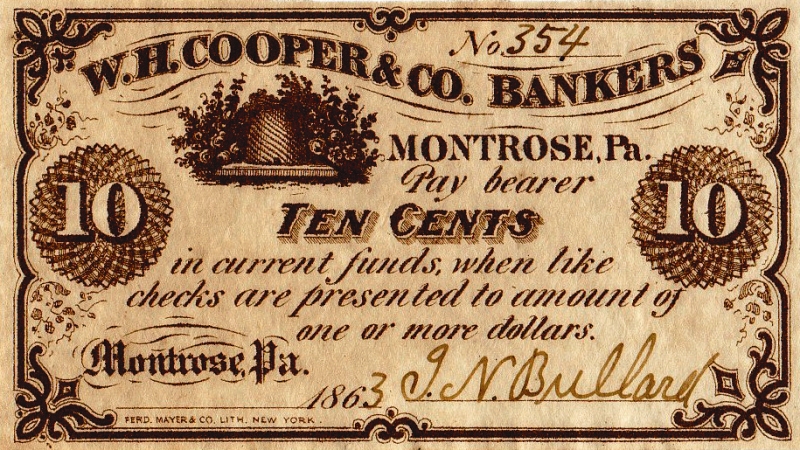 No. 354
W.H. COOPER & CO. BANKERS
MONTROSE, Pa.
Pay bearer
10 TEN CENTS 10
in current funds, when like
checks are presented to amount of
one or more dollars.
Montrose, Pa.
1863 J. N. Bullard
FERD. MAYER & CO. LITH. NEW YORK.